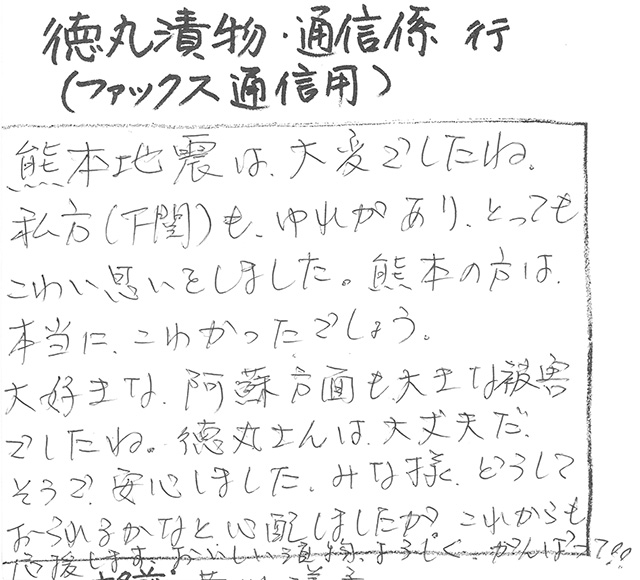 徳丸漬物・通信係 行
(ファックス通信用)
熊本地震は、大変でしたね。
私方(下関)も、ゆれがあり、とっても
こわい思いをしました。熊本の方は、
本当に、こわかったでしょう。
大好きな、阿蘇方面も、大きな被害
でしたね。徳丸さんは、大丈夫だ、
そうで、安心しました。みな様、どうして
おられるかなと、心配しましたが、これからも
応援します。おいしい漬物、よろしく、がんばって!!